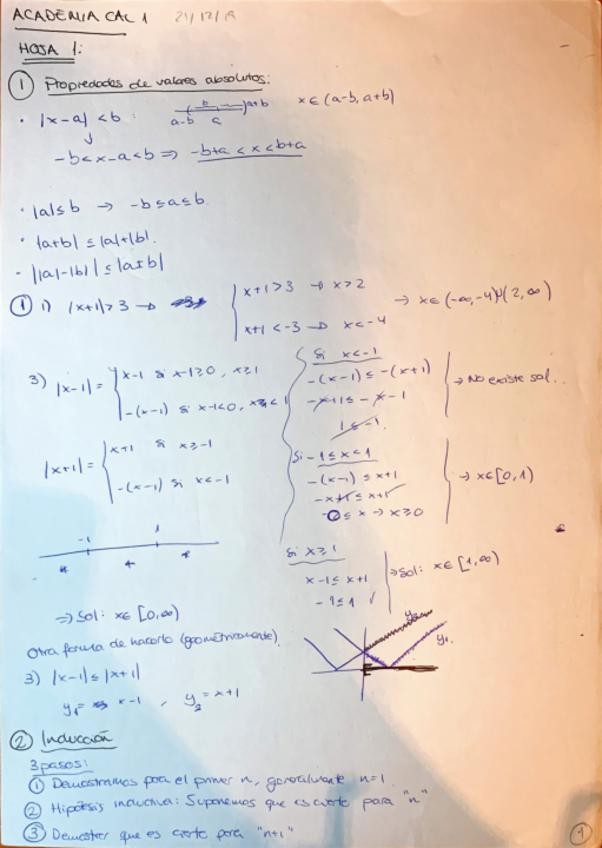 ACADEMIA CAL 1 21/12/19
HOJA 1:
① Propiedades de valores absolutos:
· |x-a| < b : a-b a b a+b x ∈ (a-b, a+b)
↓
-b < x-a < b ⇒ -b+a < x < b+a
· |a| ≤ b → -b ≤ a ≤ b.
· |a+b| ≤ |a|+|b|.
· ||a|-|b|| ≤ |a±b|
① 1) |x+1| > 3 → { x+1 > 3 → x > 2
x+1 < -3 → x < -4
→ x ∈ (-∞, -4) ∪ (2, ∞)
3) |x-1| = { x-1 si x-1≥0, x≥1
-(x-1) si x-1<0, x<1
|x+1| = { x+1 si x≥-1
-(x-1) si x<-1
-1 1
Si x<-1
-(x-1) ≤ -(x+1)
-x+1 ≤ -x-1
1 ≤ -1.
→ No existe sol..
Si -1 ≤ x < 1
-(x-1) ≤ x+1
-x+1 ≤ x+1
0 ≤ x → x ≥ 0
→ x ∈ [0, 1)
Si x ≥ 1
x-1 ≤ x+1
-1 ≤ 1 ✓
→ Sol: x ∈ [1, ∞)
⇒ Sol: x ∈ [0, ∞)
Otra forma de hacerlo (geométricamente)
3) |x-1| ≤ |x+1|
y₁ = x-1 , y₂ = x+1
y₂ y₁.
② Inducción
3 pasos:
① Demostramos para el primer n, generalmente n=1
② Hipótesis inductiva: Suponemos que es cierto para "n"
③ Demostrar que es cierto para "n+1"
1